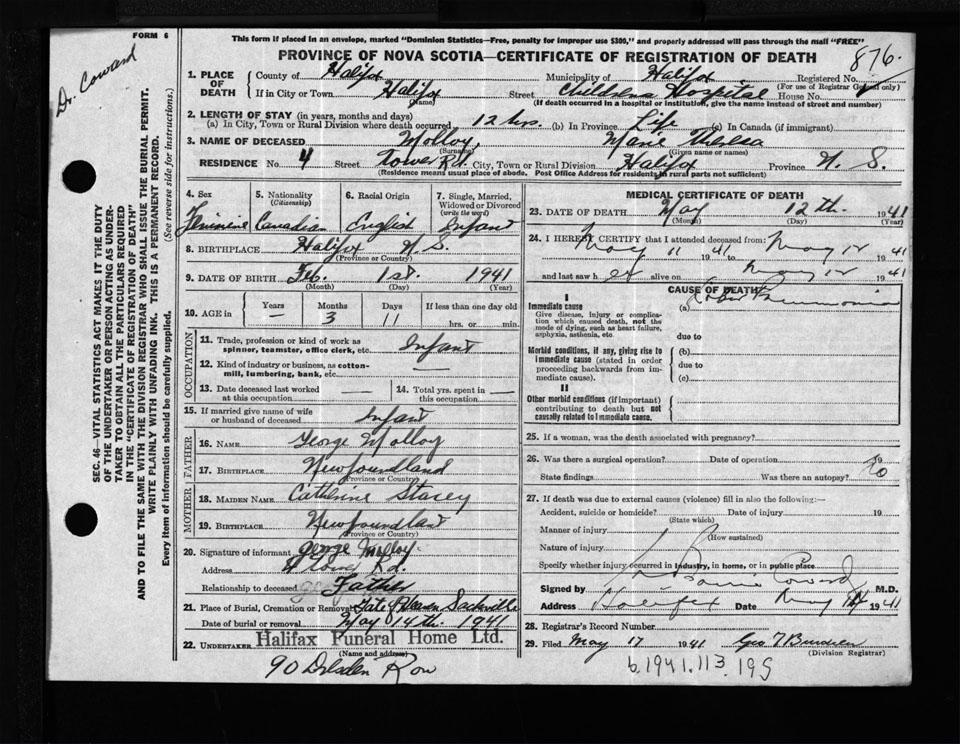 FORM 6
This form if placed in an envelope, marked "Dominion Statistics—Free, penalty for improper use $300," and properly addressed will pass through the mail "FREE"
PROVINCE OF NOVA SCOTIA—CERTIFICATE OF REGISTRATION OF DEATH
876
Dr. Coward
1. PLACE OF DEATH
County of Halifax Municipality of Halifax Registered No.
(For use of Registrar General only)
If in City or Town Halifax Street Childrens Hospital House No.
(Name) (If death occurred in a hospital or institution, give the name instead of street and number)
2. LENGTH OF STAY (in years, months and days)
(a) In City, Town or Rural Division where death occurred 12 hrs. (b) In Province Life (c) In Canada (if immigrant)
3. NAME OF DECEASED Molloy, Marie Theresa
(Surname) (Given name or names)
RESIDENCE No. 4 Street Tower Rd. City, Town or Rural Division Halifax Province N. S.
(Residence means usual place of abode. Post Office Address for residents in rural parts not sufficient)
4. Sex 5. Nationality (Citizenship) 6. Racial Origin 7. Single, Married, Widowed or Divorced (write the word)
Feminine Canadian English Infant
8. BIRTHPLACE Halifax N. S.
(Province or Country)
9. DATE OF BIRTH Feb. 1st. 1941
(Month) (Day) (Year)
10. AGE in Years Months Days If less than one day old
— 3 11 hrs. or min.
OCCUPATION
11. Trade, profession or kind of work as spinner, teamster, office clerk, etc. Infant
12. Kind of industry or business, as cotton-mill, lumbering, bank, etc. —
13. Date deceased last worked at this occupation — 14. Total yrs. spent in this occupation —
15. If married give name of wife or husband of deceased Infant
FATHER
16. NAME George Molloy
17. BIRTHPLACE Newfoundland
(Province or Country)
MOTHER
18. MAIDEN NAME Catherine Stacey
19. BIRTHPLACE Newfoundland
(Province or Country)
20. Signature of informant George Molloy
Address 4 Tower Rd.
Relationship to deceased Father
21. Place of Burial, Cremation or Removal Gate of Heaven Sackville
Date of burial or removal May 14th. 1941
22. UNDERTAKER Halifax Funeral Home Ltd.
(Name and address)
90 Dresden Row
MEDICAL CERTIFICATE OF DEATH
23. DATE OF DEATH May 12th. 1941
(Month) (Day) (Year)
24. I HEREBY CERTIFY that I attended deceased from:
May 11 1941 to May 12 1941
and last saw her alive on May 12 1941
CAUSE OF DEATH
I
Immediate cause (a) Lobar Pneumonia
Give disease, injury or complication which caused death, not the mode of dying, such as heart failure, asphyxia, asthenia, etc.
due to
Morbid conditions, if any, giving rise to immediate cause (stated in order proceeding backwards from immediate cause).
(b)
due to
(c)
II
Other morbid conditions (if important) contributing to death but not causally related to immediate cause.
25. If a woman, was the death associated with pregnancy?
26. Was there a surgical operation? Date of operation
State findings Was there an autopsy?
27. If death was due to external causes (violence) fill in also the following:—
Accident, suicide or homicide? Date of injury 19
(State which)
Manner of injury
(How sustained)
Nature of injury
Specify whether injury occurred in industry, in home, or in public place
Signed by Coward M.D.
Address Halifax Date May 1941
28. Registrar's Record Number
29. Filed May 17 1941 Geo
(Division Registrar)
b.1941.113.195
SEC. 46—VITAL STATISTICS ACT MAKES IT THE DUTY
OF THE UNDERTAKER OR PERSON ACTING AS UNDER-
TAKER TO OBTAIN ALL THE PARTICULARS REQUIRED
IN THE "CERTIFICATE OF REGISTRATION OF DEATH"
AND TO FILE THE SAME WITH THE DIVISION REGISTRAR WHO SHALL ISSUE THE BURIAL PERMIT.
WRITE PLAINLY WITH UNFADING INK. THIS IS A PERMANENT RECORD.
Every item of information should be carefully supplied. (See reverse side for instructions.)